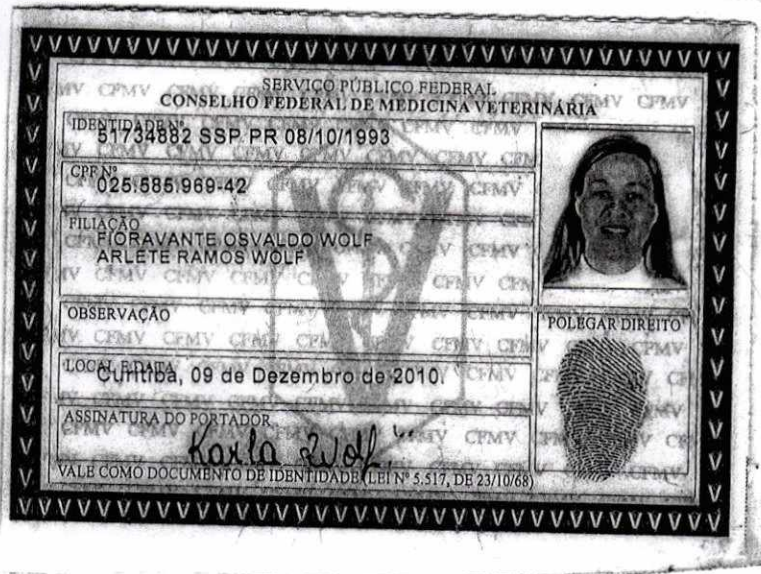 SERVIÇO PÚBLICO FEDERAL
CONSELHO FEDERAL DE MEDICINA VETERINÁRIA
IDENTIDADE Nº
51734882 SSP. PR 08/10/1993
CPF Nº
025.585.969-42
FILIAÇÃO
FIORAVANTE OSVALDO WOLF
ARLETE RAMOS WOLF
OBSERVAÇÃO
POLEGAR DIREITO
LOCAL E DATA
Curitiba, 09 de Dezembro de 2010.
ASSINATURA DO PORTADOR
Karla Wolf
VALE COMO DOCUMENTO DE IDENTIDADE (LEI Nº 5.517, DE 23/10/68)